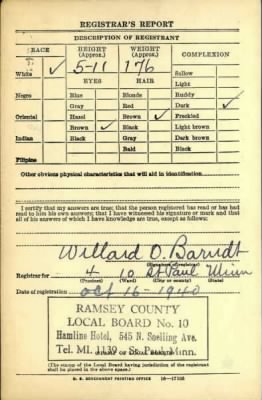 REGISTRAR'S REPORT
DESCRIPTION OF REGISTRANT
RACE
HEIGHT (Approx.)
WEIGHT (Approx.)
COMPLEXION
White ✓
5-11
176
Sallow
EYES
HAIR
Light
Negro
Blue
Blonde
Ruddy
Gray
Red
Dark ✓
Oriental
Hazel
Brown ✓
Freckled
Brown ✓
Black
Light brown
Indian
Black
Gray
Dark brown
Bald
Black
Filipino
Other obvious physical characteristics that will aid in identification
I certify that my answers are true; that the person registered has read or has had
read to him his own answers; that I have witnessed his signature or mark and that
all of his answers of which I have knowledge are true, except as follows:
Willard O. Barndt
(Signature of registrar)
Registrar for 4 10 St Paul Minn
(Precinct) (Ward) (City or county) (State)
Date of registration Oct 16-1940
RAMSEY COUNTY
LOCAL BOARD No. 10
Hamline Hotel, 545 N. Snelling Ave.
Tel. MI. 1139 St. Paul, Minn.
(The stamp of the Local Board having jurisdiction of the registrant
shall be placed in the above space.)
U. S. GOVERNMENT PRINTING OFFICE